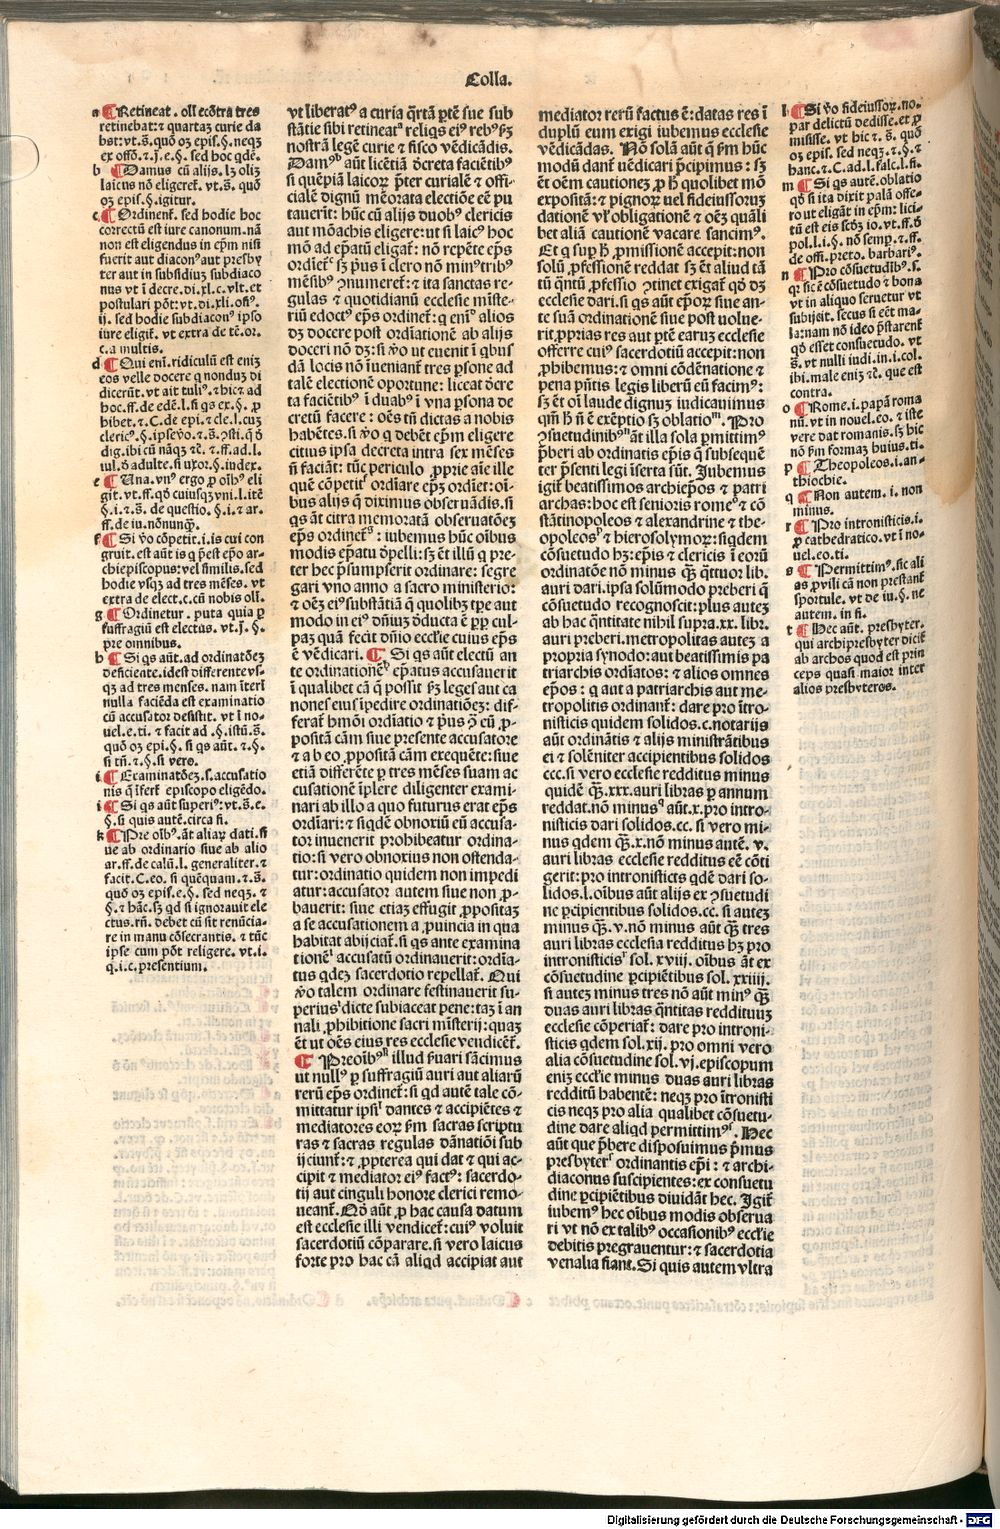 Colla.
a ¶ Retineat . oli ecõtra tres
retinebat: ⁊ quartaz curie da
bat: vt.s̃. quõ oz epis.§. neqz
ex offõ. ⁊.j.e.§. sed hoc gdẽ.
b ¶ Damus cũ alijs. lz oliz
laicus nõ eligeret. vt.s̃. quõ
oz epis.§. igitur.
c ¶ Ordinent̃. sed hodie hoc
correctũ est iure canonum. nã
non est eligendus in ep̃m nisi
fuerit aut diacon⁹ aut presby
ter aut in subsidiuz subdiaco
nus vt ĩ decre. di.xl.c. vlt. et
postulari põt: vt.di.xli.
ij. sed hodie subdiacon⁹ ipso
iure eligit̃. vt extra de
c.a multis.
d ¶ Qui eni. ridiculũ est eniz
eos velle docere q nonduz di
dicerũt. vt ait tuli⁹.
e ¶ Una. vn⁹ ergo p oĩb⁹ eli
f ¶ Si ṽo cõpetit. i. is cui con
gruit. est aut is q p̃est ep̃o ar-
chiepiscopus: vel similis. sed
hodie vsqz ad tres mẽses. vt
extra de elect.c. cũ nobis oli.
g ¶ Ordinetur . puta quia p
suffragiũ est electus. vt.j.§.
pre omnibus.
h ¶ Si qs aũt. ad ordinatõez
deficiente. idest differente vs-
qz ad tres menses. nam iterĩ
nulla faciẽda est examinatio
cũ accusator desistit. vt ĩ no-
uel.e.ti. ⁊ facit ad .§. istũ.s̃.
quõ oz epi.§. si qs aũt. ⁊.§.
si tñ. ⁊.§. si vero.
i ¶ Examinatõez.s. accusatio
nis q̃ ĩfert̃ episcopo eligẽdo.
i ¶ Si qs aũt superi⁹: vt.s̃.e.
§. si quis autẽ. circa fi.
k ¶ Pre oĩb⁹. ãt aliaꝝ dati. si
ue ab ordinario siue ab alio
ar.ff. de calũ.l. generaliter. ⁊
facit.C.eo. si quẽquam. ⁊.s̃.
quõ oz epis.e.§. sed neqz. ⁊
§. ⁊ hãc. sz qd si ignorauit ele
ctus. rñ. debet cũ sit renũcia-
re in manu cõsecrantis. ⁊ tũc
ipse cum põt religere. vt.i.
q.i.c. presentium.
vt liberat⁹ a curia q̃rtã p̃tẽ sue sub
stãtie sibi retineat⁹ reliqs ei⁹ reb⁹ fz
nostrã legẽ curie ⁊ fisco vẽdicãdis.
Dam⁹ᵇ aũt licẽtiã d̃creta faciẽtib⁹
si quẽpiã laicoꝝ p̃ter curialẽ ⁊ offi-
cialẽ dignũ mẽorata electiõe eẽ pu
tauerit: hũc cũ alijs duob⁹ clericis
aut mõachis eligere: ut si laic⁹ hoc
mõ ad ep̃atũ eligat̃: nõ repẽte ep̃s
ordiet̃ᶜ sz p̃us ĩ clero nõ min⁹ trib⁹
mẽsib⁹ ɔnumeret̃: ⁊ ita sanctas re-
gulas ⁊ quotidianũ ecclesie mĩste-
riũ edoct⁹ ep̃s ordinet̃: q eniᵈ alios
dz docere post ordĩationẽ ab alijs
doceri nõ dz: si ṽo ut euenit ĩ qbus
dã locis nõ ĩueniant̃ tres p̃sone ad
talẽ electionẽ oportune: liceat d̃cre
ta faciẽtib⁹ ĩ duab⁹ ĩ vna p̃sona de
cretũ facere : oẽs tñ dictas a nobis
habẽtes. si ṽo q debẽt ep̃m eligere
citius ipsa decreta intra sex mẽses
ñ faciãt: tũc periculo ꝓprie aĩe ille
quẽ cõpetitᶠ ordĩare ep̃z ordĩet: oĩ-
bus alijs q̃ diximus obseruãdis. si
qs ãt citra memoratã obseruatõez
ep̃s ordinet̃ᵍ : iubemus hũc oĩbus
modis ep̃atu d̃pelli: sz ẽt illũ q pre-
ter hec p̃sumpserit ordinare: segre
gari vno anno a sacro ministerio:
⁊ oẽz ei⁹ substãtiã q̃ quolibz tpe aut
modo in ei⁹ dñiuz d̃ducta ẽ pꝓ cul-
paz quã fecit dñio eccl̃ie cuius ep̃s
ẽ vẽdicari. ¶ Si qs aũt electũ an
te ordinationẽʰ ep̃atus accusauerit
ĩ qualibet cã q̃ possit fz leges aut ca
nones eius ĩpedire ordinatiõez: dif-
ferat̃ hmõi ordĩatio ⁊ p̃us ɔ̃ cũ ꝓ-
positã cãm siue presente accusatore
⁊ a b eo ꝓpositã cãm exequẽte: siue
etiã differẽte p tres mẽses suam ac
cusationẽ ĩplere diligenter exami-
nari ab illo a quo futurus erat ep̃s
ordĩari: ⁊ siqdẽ obnoxiũ eũ accusa-
tor inuenerit prohibeatur ordina-
tio: si vero obnoxius non ostenda-
tur: ordinatio quidem non impedi
atur: accusator autem siue non ꝓ-
bauerit: siue etiaz effugit ꝓpositaz
a se accusationem a ꝓuincia in qua
habitat abijciat̃. si qs ante examina
tionẽⁱ accusatũ ordinauerit: ordĩa-
tus qdez sacerdotio repellat̃. Qui
ṽo talem ordinare festinauerit su-
periusⁱ dicte subiaceat pene: taz ĩ an
nali ꝓhibitione sacri mĩsterij: quaz
ẽt ut oẽs eius res ecclesie vendicẽt̃.
¶ Preoĩb⁹ᵏ illud p̃uari sãcimus
ut null⁹ p suffragiũ auri aut aliarũ
rerũ ep̃s ordinet̃: si qd autẽ tale cõ-
mittatur ipsĩ dantes ⁊ accipiẽtes ⁊
mediatores eoꝝ fm sacras scriptu
ras ⁊ sacras regulas dãnatiõi sub
ijciunt̃: ⁊ ꝓpterea qui dat ⁊ qui ac-
cipit ⁊ mediator ei⁹ fact⁹: sacerdo-
tij aut cinguli honore clerici remo-
ueant̃. Qõ aũt ꝓ hac causa datum
est ecclesie illi vendicet̃: cui⁹ voluit
sacerdotiũ cõparare. si vero laicus
forte pro hac cã aliqd accipiat aut
mediator rerũ factus ẽ: datas res ĩ
duplũ eum exigi iubemus ecclesie
vẽdicãdas. Nõ solã aũt q̃ fm hũc
modũ dant̃ uẽdicari p̃cipimus : sz
ẽt oẽm cautionez ꝓ h̃ quolibet mõ
expositã: ⁊ pignoꝝ uel fideiussoruz
dationẽ vl̃ obligationẽ ⁊ oẽz quãli
bet aliã cautionẽ vacare sancim⁹.
Et q sup h̃ ꝓmissionẽ accepit: non
solũ ꝓfessionẽ reddat sz ẽt aliud tã
tũ q̃ntũ ꝓfessio ɔtinet exigat̃ qõ dz
ecclesie dari. si qs aũt ep̃oꝝ siue an-
te suã ordinationẽ siue post uolue-
rit ꝓprias res aut p̃tẽ earuz ecclesie
offerre cui⁹ sacerdotiũ accepit: non
ꝓhibemus: ⁊ omni cõdẽnatione ⁊
pena p̃ntis legis liberũ eũ facim⁹:
sz ẽt oĩ laude dignuz iudicauimus
qm̃ h̃ ñ ẽ exẽptio sz oblatioᵐ. Pro
ɔsuetudinib⁹ⁿ ãt illa sola p̃mittim⁹
p̃beri ab ordinatis ep̃is q̃ subsequẽ
ter p̃senti legi ĩserta sũt. Jubemus
igit̃ beatissimos archiep̃os ⁊ patri
archas: hoc est senioris romeᵒ ⁊ cõ
stãtinopoleos ⁊ alexandrine ⁊ the-
opoleosᵖ ⁊ hierosolymoꝝ: siqdem
cõsuetudo hz: ep̃is ⁊ clericis ĩ eorũ
ordinatõe nõ minus q̃z q̃ttuor lib.
auri dari. ipsa solũmodo preberi q̃
cõsuetudo recognoscit: plus autez
ab hac q̃ntitate nihil supra.xx. libr.
auri preberi. metropolitas autez a
propria synodo: aut beatissimis pa
triarchis ordĩatos: ⁊ alios omnes
ep̃os : q aut a patriarchis aut me-
tropolitis ordinant̃: dare pro ĩtro-
nisticis quidem solidos.c. notarijs
aũt ordinãtis ⁊ alijs ministrãtibus
ei ⁊ solẽniter accipientibus solidos
ccc. si vero ecclesie redditus minus
quidẽ q̃z.xxx. auri libras p annum
reddat. nõ minus⁹ aũt.x. pro intro-
nisticis dari solidos.cc. si vero mi-
nus qdem q̃z.x. nõ minus autẽ. v.
auri libras ecclesie redditus eẽ cõti
gerit: pro intronisticis qdẽ dari so-
lidos.l. oĩbus aũt alijs ex ɔsuetudi
ne pcipientibus solidos.cc. si autez
minus q̃z.v. nõ minus aũt q̃z tres
auri libras ecclesia redditus hz pro
intronisticisʳ sol. xviij. oĩbus ãt ex
cõsuetudine pcipiẽtibus sol. xxiiij.
si autez minus tres nõ aũt min⁹ q̃z
duas auri libras q̃ntitas reddituuz
ecclesie cõperiat̃: dare pro introni-
sticis qdem sol.xij. pro omni vero
alia cõsuetudine sol. vj. episcopum
eniz eccl̃ie minus duas auri libras
redditũ habentẽ: neqz pro ĩtronisti
cis neqz pro alia qualibet cõsuetu-
dine dare aliqd permittim⁹ˢ. Hec
aũt que p̃bere disposuimus p̃mus
presbyterᵗ ordinantis ep̃i : ⁊ archi-
diaconus suscipientes: ex consuetu
dine pcipiẽtibus diuidãt hec. Jgit̃
iubem⁹ hec oĩbus modis obserua
ri vt nõ ex talib⁹ occasionib⁹ eccl̃ie
debitis pregrauentur: ⁊ sacerdotia
venalia fiant. Si quis autem vltra
l ¶ Si ṽo fideiussoꝝ. no-
par delictũ dedisse. et ꝓ
misisse. vt hic ⁊ s̃. quõ
oz epis. sed neqz. ⁊.§. ⁊
hanc. ⁊.C. ad.l. falc.l. fi.
m ¶ Si qs autẽ. oblatio
qõ si ita dixit palã offe-
ro ut eligãt in ep̃m: lici-
n ¶ Pro cõsuetudĩb⁹.s.
qz sic ẽ cõsuetudo ⁊ bona
vt in aliquo seruetur vt
subijcit. secus si eẽt ma-
la: nam nõ ideo p̃starent̃
qõ esset consuetudo. vt
s̃. vt nulli iudi. in.i. col.
ibi. male eniz ⁊c̃. que est
contra.
o ¶ Rome. i. papã roma
nũ. vt in nouel. eo. ⁊ iste
vere dat romanis. sz hic
nõ fm formaz huius. ti.
p ¶ Theopoleos. i. an-
thiochie.
q ¶ Non autem. i. non
minus.
r ¶ Pro intronisticis. i.
ꝓ cathedratico. vt ĩ no-
uel. eo. ti.
s ¶ Permittim⁹. sic ali
as ꝓ vili cã non prestant̃
sportule. vt de iu.§. ne
autem. in fi.
t ¶ Hec aũt. presbyter.
qui archipresbyter dicit̃
ab archos quod est prin
ceps quasi maior inter
alios presbyteros.
Digitalisierung gefördert durch die Deutsche Forschungsgemeinschaft - DFG